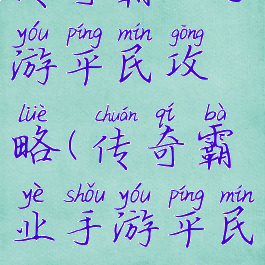 yóu píng mín gōng
游平民攻
lüè chuán qí bà
略(传奇霸
yè shǒu yóu píng mín
业手游平民